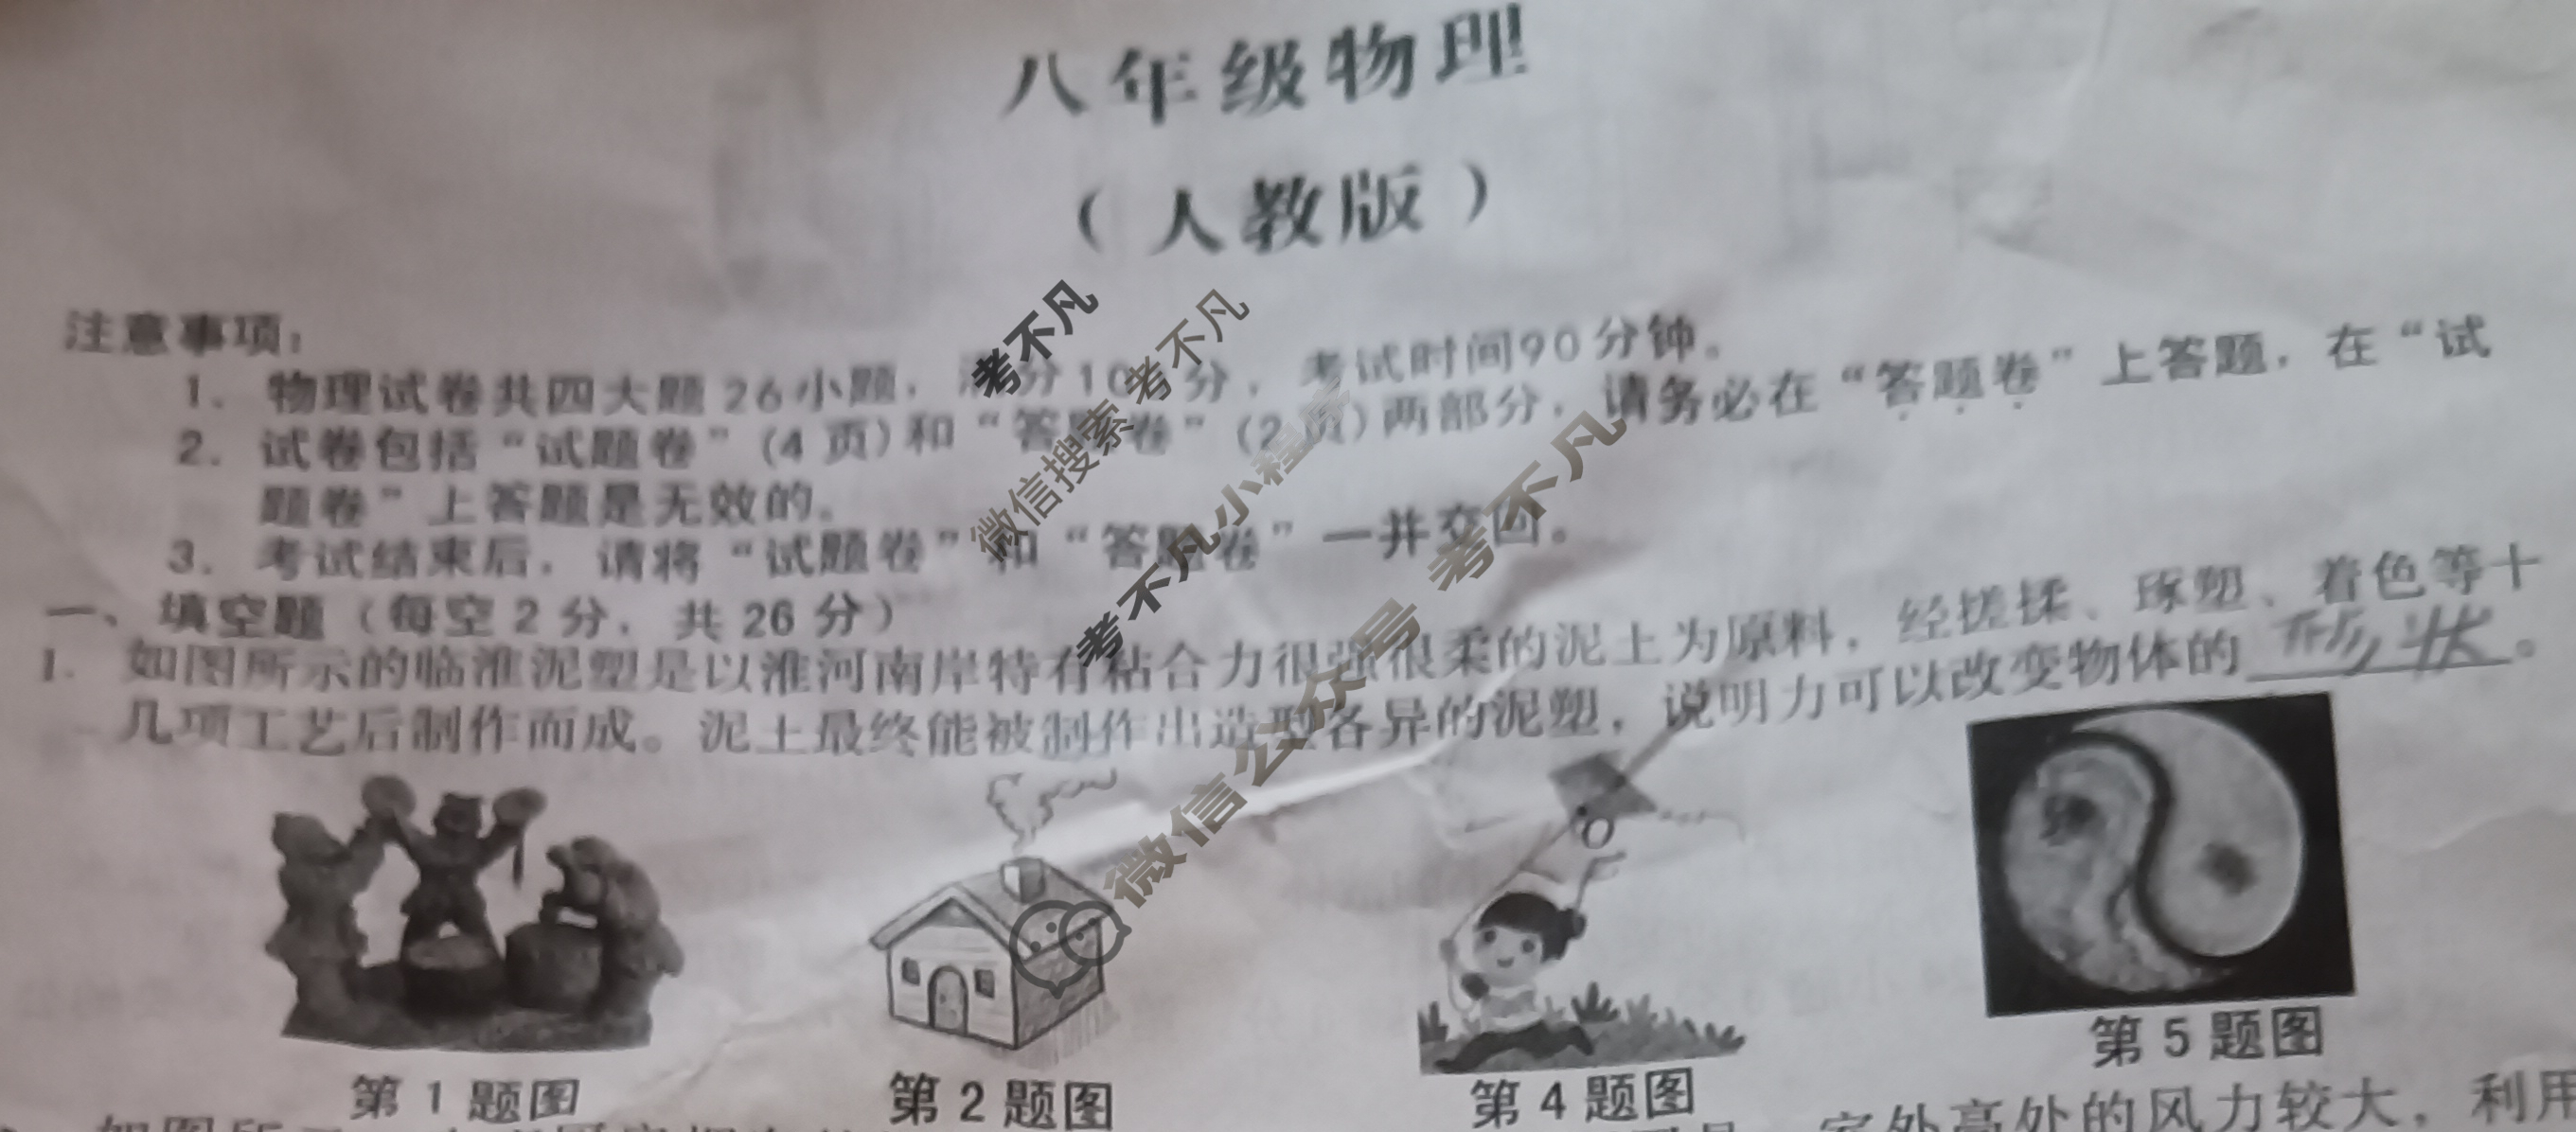 八年级物理
（人教版）
注意事项：
1. 物理试卷共四大题26小题，满分100分，考试时间90分钟。
2. 试卷包括“试题卷”(4页)和“答题卷”(2页)两部分，请务必在“答题卷”上答题，在“试
题卷”上答题是无效的。
3. 考试结束后，请将“试题卷”和“答题卷”一并交回。
一、填空题（每空2分，共26分）
1. 如图所示的临淮泥塑是以淮河南岸特有粘合力很强很柔的泥土为原料，经搓揉、琢塑、着色等十
几项工艺后制作而成。泥土最终能被制作出造型各异的泥塑，说明力可以改变物体的形状。
第1题图
第2题图
第4题图
第5题图
室外高处的风力较大，利用
考不凡
微信搜索 考不凡
考不凡小程序
微信公众号 考不凡